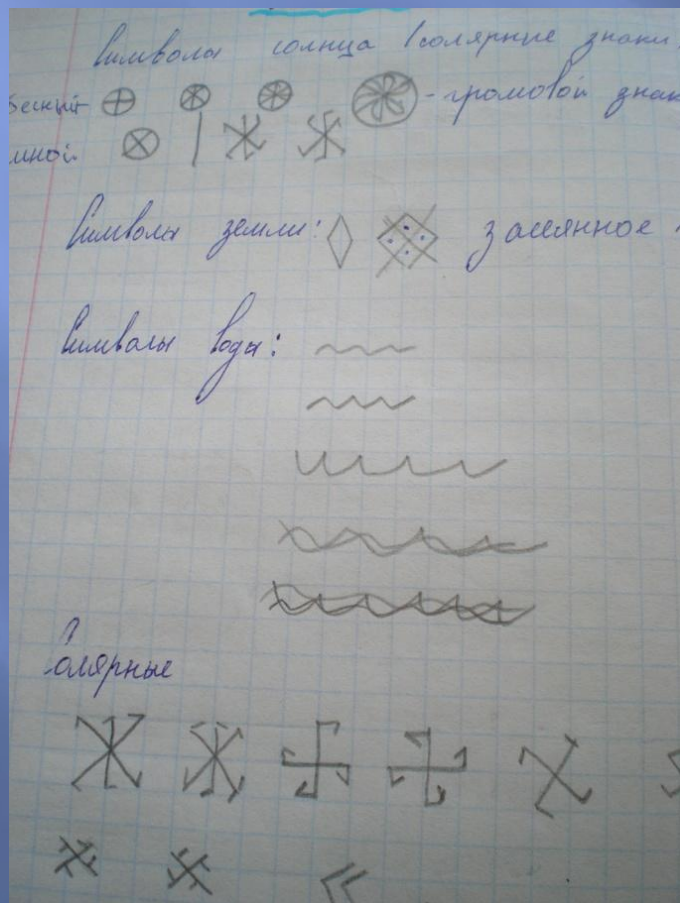 Символы солнца (солярные знаки
- громовой знак
Символы земли: засеянное
Символы воды:
Солярные